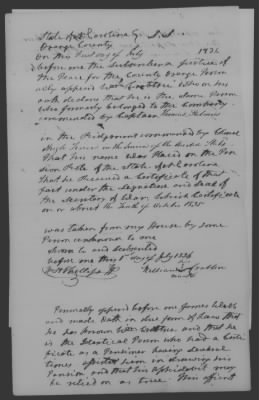 State of N Carolina
Orange County
On this first day of July 1836
before me the subscriber a justice of
the Peace for the County Orange Person
ally appeared Wm Crabtree who on his
oath declare that he is the same Person
who formerly belonged to the Company
commanded by Captain
in the Regiment commanded by Colonel
in the Service of the United States
That his name was Placed on the Pen
sion Role of the State N Carolina
that he Received a Certificate of that
fact under the Signature and Seal of
the Secretary of War which Certificate
on or about the Tenth of October 1835
was taken from My House by some
Person unknown to me
Sworn to and Subscribed
before me this 1 day of July 1836
Phillips JP William Crabtree
mark
Personally appeared before me James Webb
and made oath in due form of Law that
he has known Wm Crabtree and that he
is the Identical Person who had a Certi
ficate as a Pensioner having several
times assisted him in drawing his
Pension and that his affidavit may
be relied on as true